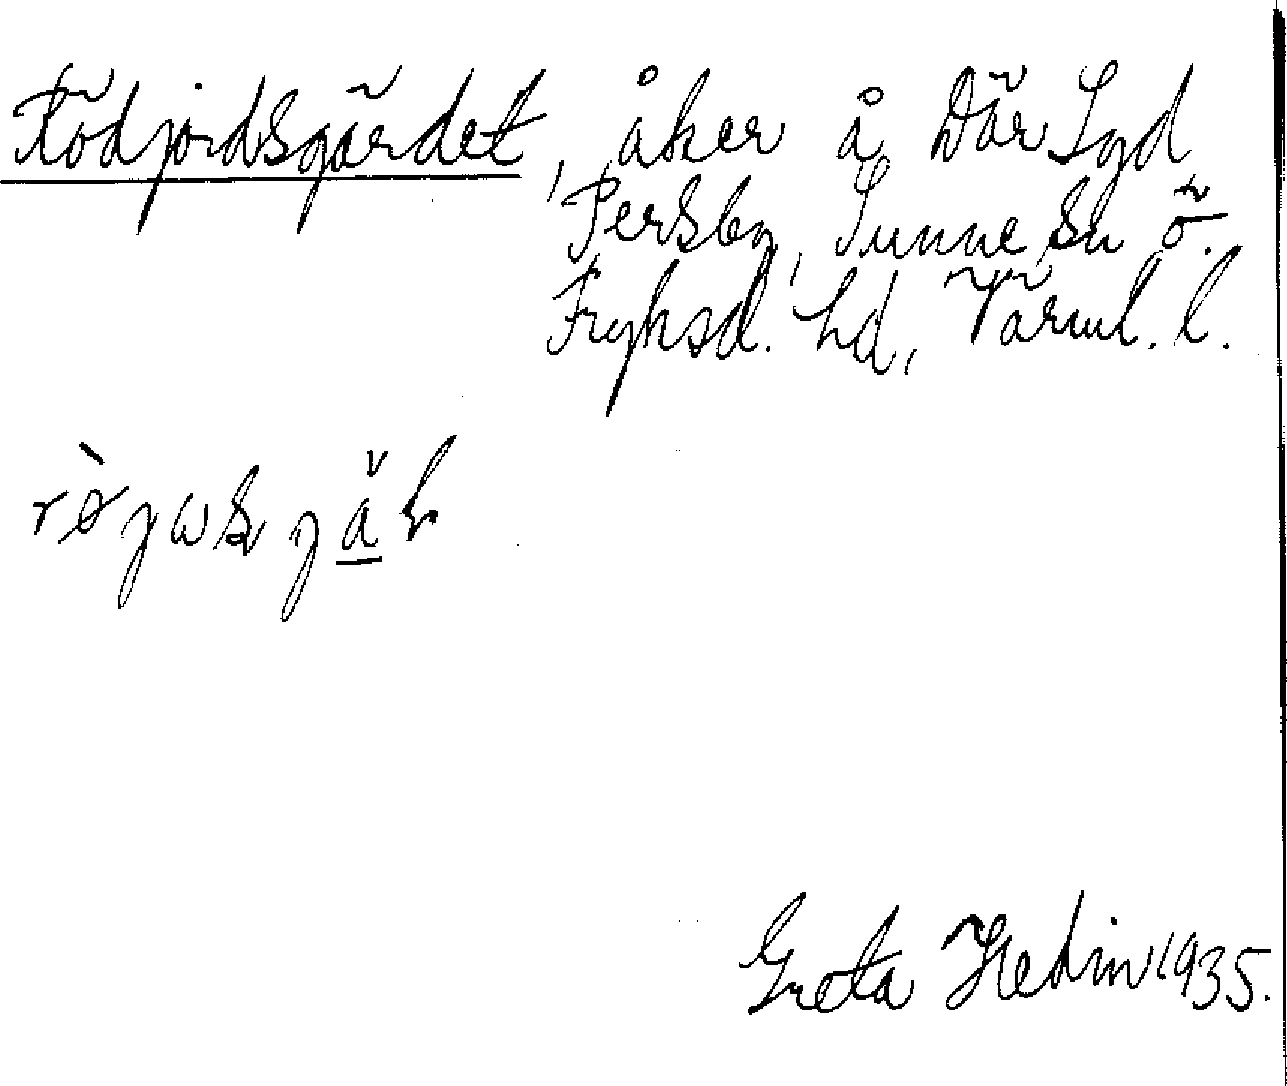 Rödjordsgärdet, åker å Där Sgd
Persby, Sunne sn Ö.
Fryksd. hd, Värml. l.
Greta Hedin 1935.